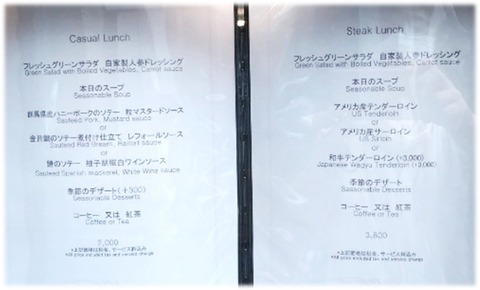 Casual Lunch
フレッシュグリーンサラダ 自家製人参ドレッシング
Green Salad with Boiled Vegetables, Carrot sauce
本日のスープ
Seasonable Soup
群馬県産ハニーポークのソテー 粒マスタードソース
Sauteed Pork, Mustard sauce
or
金目鯛のソテー煮付け仕立て レフォールソース
Sauteed Red Bream, Raifort sauce
or
鰆のソテー 柚子胡椒白ワインソース
Sauteed Spanish mackerel, White Wine sauce
季節のデザート (+300)
Seasonable Desserts
コーヒー 又は 紅茶
Coffee or Tea
2,000
*上記価格は税金、サービス料込み
*All price included tax and service charge
Steak Lunch
フレッシュグリーンサラダ 自家製人参ドレッシング
Green Salad with Boiled Vegetables, Carrot sauce
本日のスープ
Seasonable Soup
アメリカ産テンダーロイン
US Tenderloin
or
アメリカ産サーロイン
US Sirloin
or
和牛テンダーロイン (+3,000)
Japanese Wagyu Tenderloin (+3,000)
季節のデザート
Seasonable Desserts
コーヒー 又は 紅茶
Coffee or Tea
3,800
*上記価格は税金、サービス料込み
*All price included tax and service charge